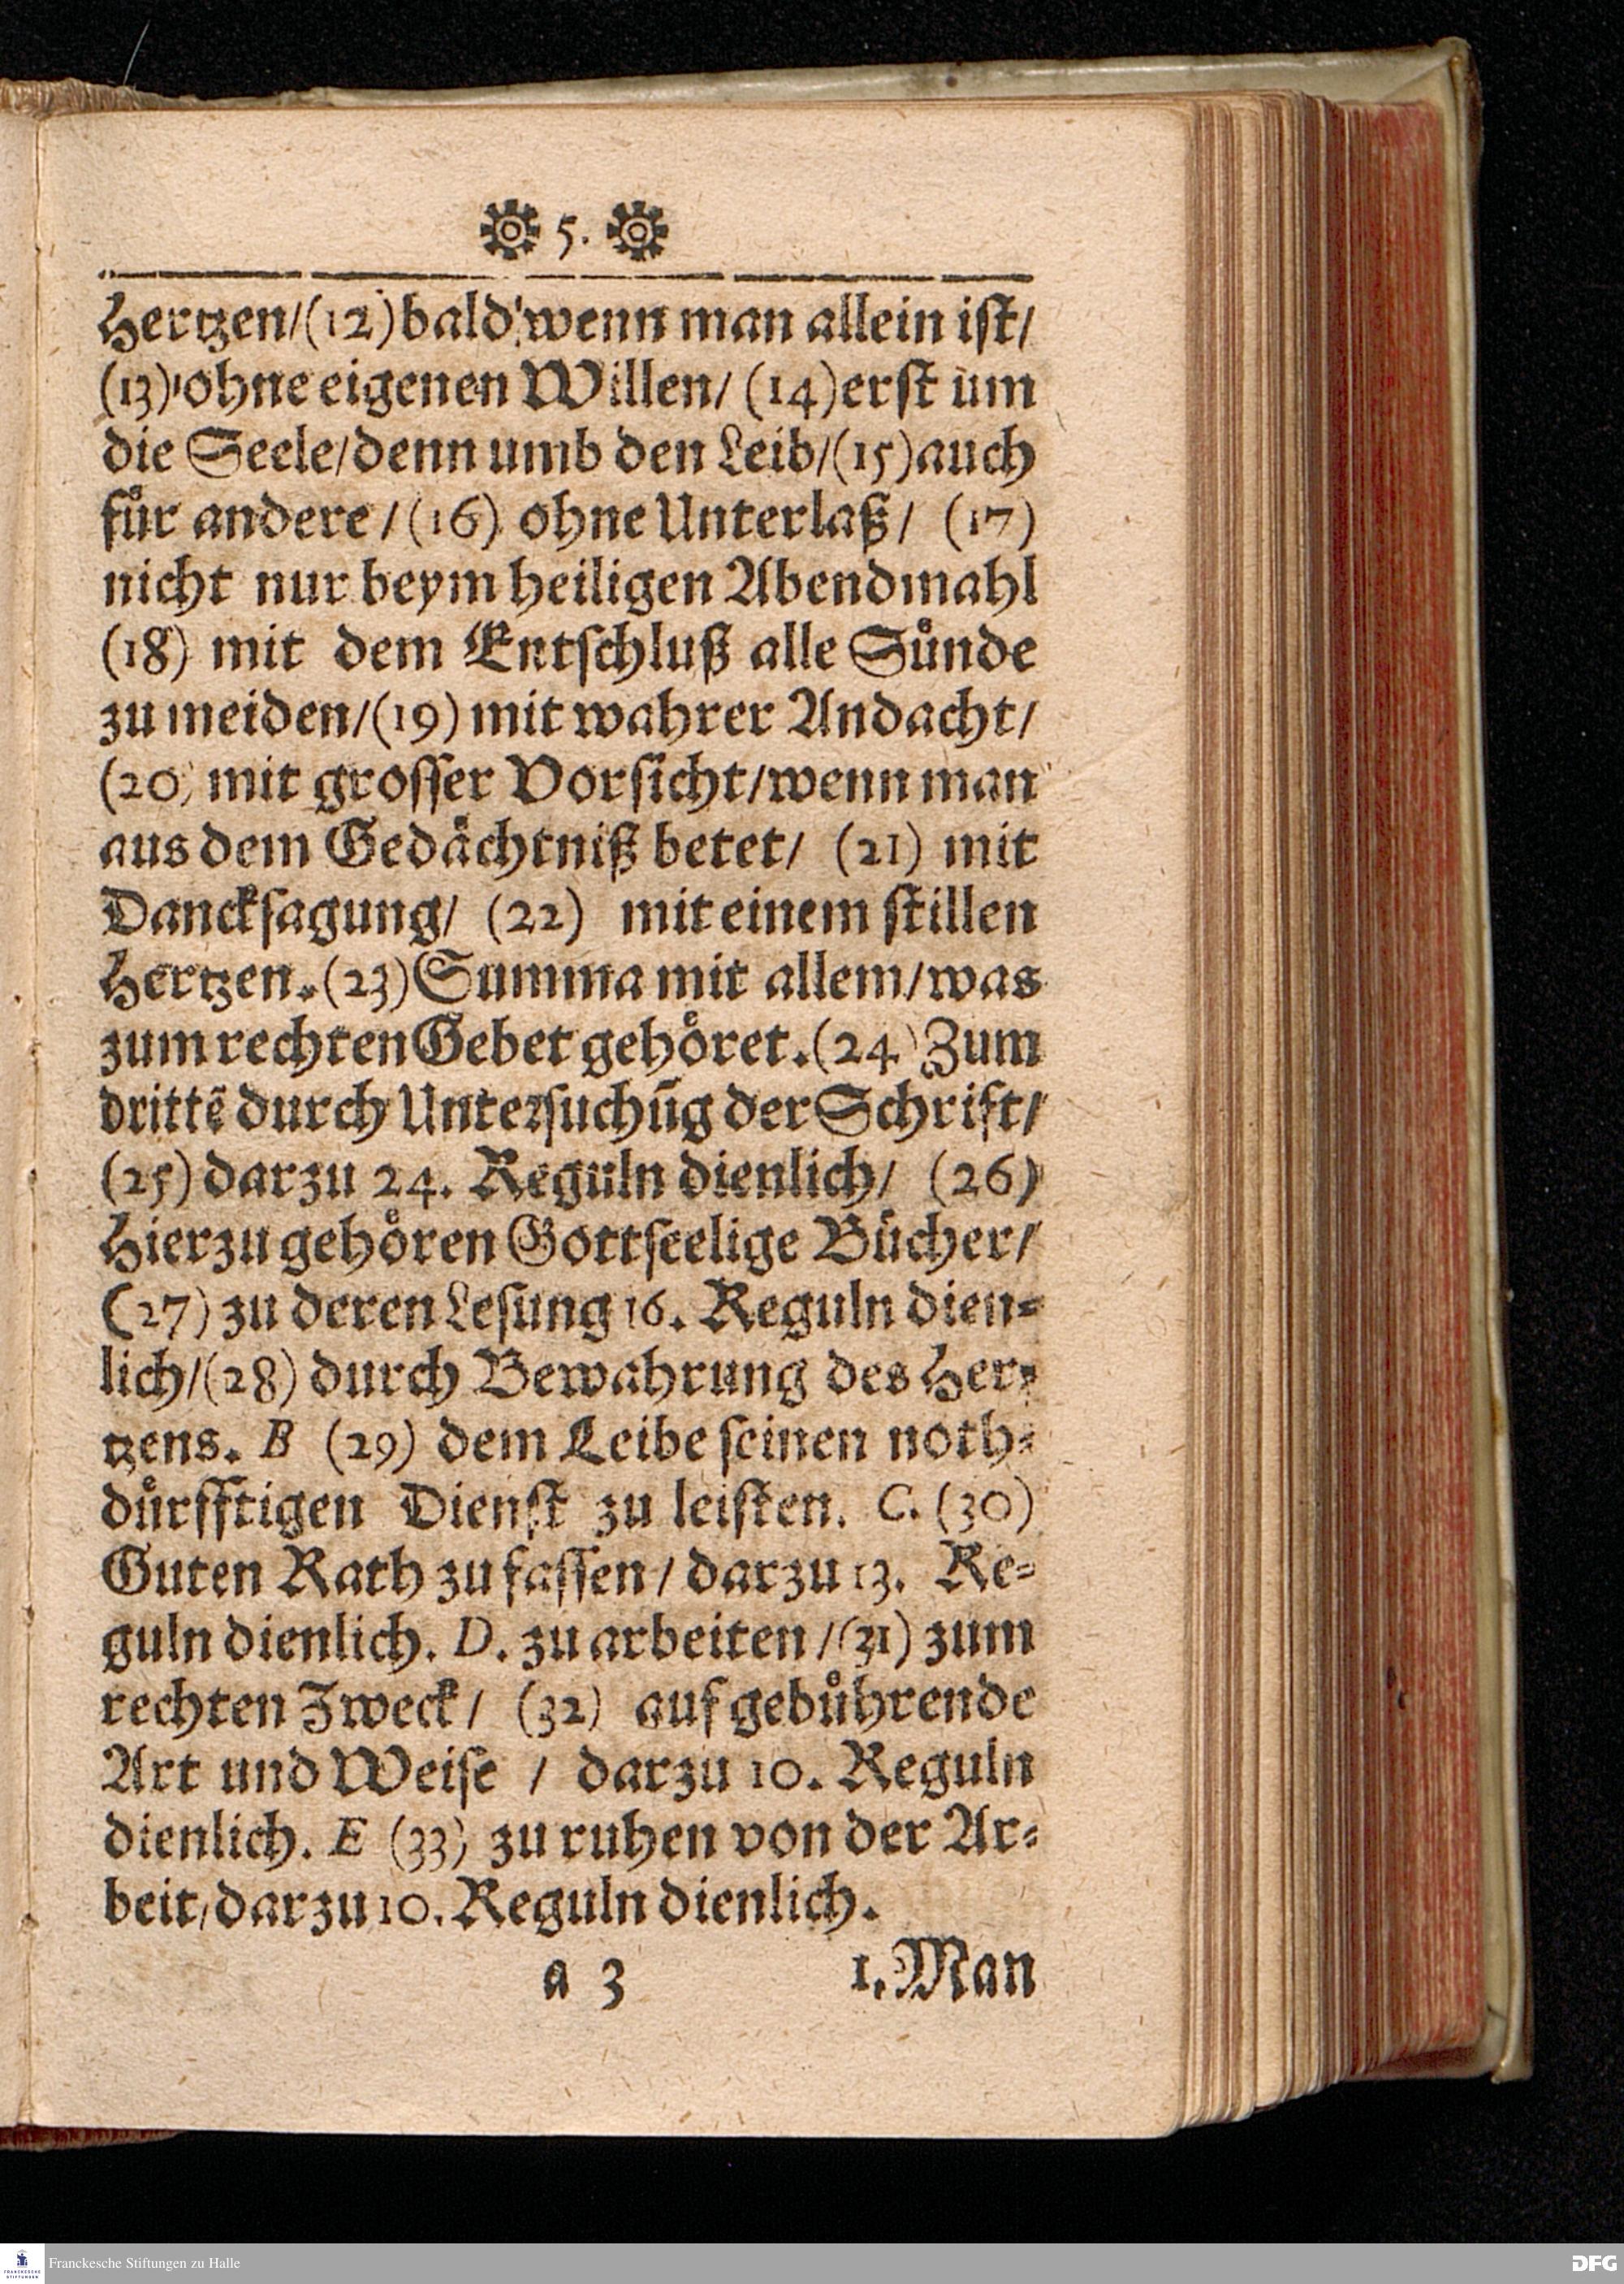 5.
Hertzen/(12)bald wenn man allein ist/
(13) ohne eigenen Willen/ (14)erst um
die Seele/denn umb den Leib/(15)auch
fuͤr andere/(16) ohne Unterlaß/ (17)
nicht nur beym heiligen Abendmahl
(18) mit dem Entschluß alle Suͤnde
zu meiden/(19) mit wahrer Andacht/
(20) mit grosser Vorsicht/wenn man
aus dem Gedaͤchtniß betet/ (21) mit
Dancksagung/ (22) mit einem stillen
Hertzen.(23)Summa mit allem/was
zum rechten Gebet gehoͤret.(24) Zum
drittẽ durch Untersuchũg der Schrift/
(25) darzu 24. Reguln dienlich/ (26)
Hierzu gehoͤren Gottseelige Buͤcher/
(27) zu deren Lesung 16. Reguln dien-
lich/(28) durch Bewahrung des Her-
tzens. B (29) dem Leibe seinen noth-
duͤrfftigen Dienst zu leisten. C. (30)
Guten Rath zu fassen/ darzu 13. Re-
guln dienlich. D. zu arbeiten/(31) zum
rechten Zweck/ (32) auf gebuͤhrende
Art und Weise / darzu 10. Reguln
dienlich. E (33) zu ruhen von der Ar-
beit/darzu 10. Reguln dienlich.
a 3 1. Man
Franckesche Stiftungen zu Halle
DFG